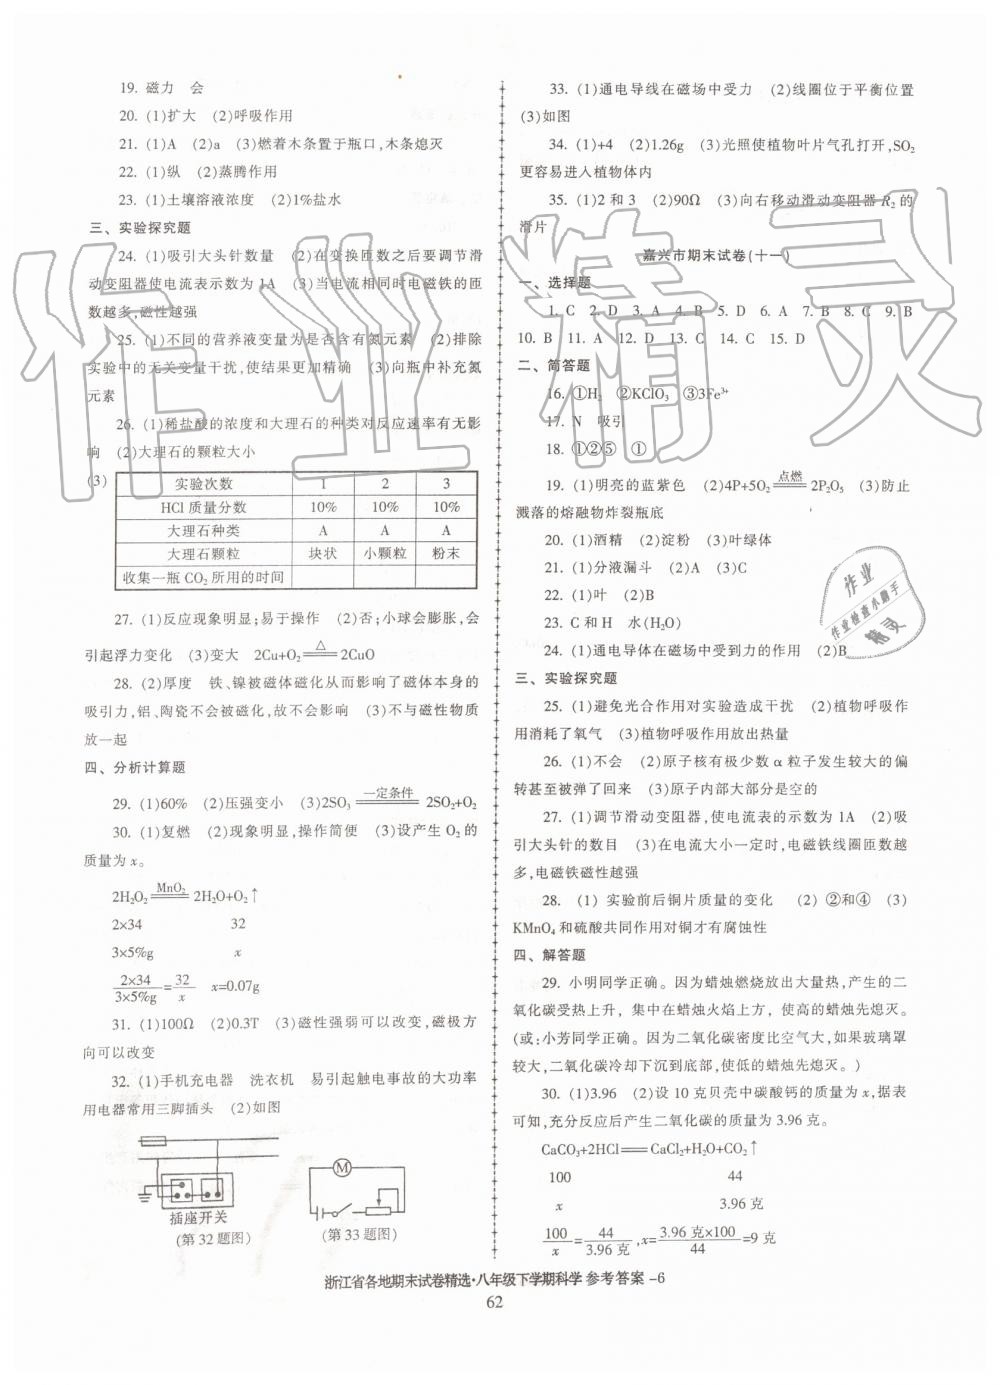 19. 磁力　会
20. (1)扩大　(2)呼吸作用
21. (1)A　(2)a　(3)燃着木条置于瓶口,木条熄灭
22. (1)纵　(2)蒸腾作用
23. (1)土壤溶液浓度　(2)1%盐水
三、实验探究题
24. (1)吸引大头针数量　(2)在变换匝数之后要调节滑
动变阻器使电流表示数为 1A　(3)当电流相同时电磁铁的匝
数越多,磁性越强
25. (1)不同的营养液变量为是否含有氮元素　(2)排除
实验中的无关变量干扰,使结果更加精确　(3)向瓶中补充氮
元素
26. (1)稀盐酸的浓度和大理石的种类对反应速率有无影
响　(2)大理石的颗粒大小
(3)
实验次数　1　2　3
HCl 质量分数　10%　10%　10%
大理石种类　A　A　A
大理石颗粒　块状　小颗粒　粉末
收集一瓶 CO₂ 所用的时间
27. (1)反应现象明显;易于操作　(2)否;小球会膨胀,会
引起浮力变化　(3)变大　2Cu+O₂ =△= 2CuO
28. (2)厚度　铁、镍被磁体磁化从而影响了磁体本身的
吸引力,铝、陶瓷不会被磁化,故不会影响　(3)不与磁性物质
放一起
四、分析计算题
29. (1)60%　(2)压强变小　(3)2SO₃ =一定条件= 2SO₂+O₂
30. (1)复燃　(2)现象明显,操作简便　(3)设产生 O₂ 的
质量为 x。
2H₂O₂ =MnO₂= 2H₂O+O₂↑
2×34　32
3×5%g　x
2×34/3×5%g = 32/x　x=0.07g
31. (1)100Ω　(2)0.3T　(3)磁性强弱可以改变,磁极方
向可以改变
32. (1)手机充电器　洗衣机　易引起触电事故的大功率
用电器常用三脚插头　(2)如图
M
插座开关
(第 32 题图)　(第 33 题图)
33. (1)通电导线在磁场中受力　(2)线圈位于平衡位置
(3)如图
34. (1)+4　(2)1.26g　(3)光照使植物叶片气孔打开,SO₂
更容易进入植物体内
35. (1)2 和 3　(2)90Ω　(3)向右移动滑动变阻器 R₂ 的
滑片
嘉兴市期末试卷(十一)
一、选择题
1. C　2. D　3. A　4. B　5. D　6. A　7. B　8. C　9. B
10. B　11. A　12. D　13. C　14. C　15. D
二、简答题
16. ①H₂　②KClO₃　③3Fe³⁺
17. N　吸引
18. ①②⑤　①
19. (1)明亮的蓝紫色　(2)4P+5O₂ =点燃= 2P₂O₅　(3)防止
溅落的熔融物炸裂瓶底
20. (1)酒精　(2)淀粉　(3)叶绿体
21. (1)分液漏斗　(2)A　(3)C
22. (1)叶　(2)B
23. C 和 H　水(H₂O)
24. (1)通电导体在磁场中受到力的作用　(2)B
三、实验探究题
25. (1)避免光合作用对实验造成干扰　(2)植物呼吸作
用消耗了氧气　(3)植物呼吸作用放出热量
26. (1)不会　(2)原子核有极少数 α 粒子发生较大的偏
转甚至被弹了回来　(3)原子内部大部分是空的
27. (1)调节滑动变阻器,使电流表的示数为 1A　(2)吸
引大头针的数目　(3)在电流大小一定时,电磁铁线圈匝数越
多,电磁铁磁性越强
28. (1) 实验前后铜片质量的变化　(2) ②和④　(3)
KMnO₄ 和硫酸共同作用对铜才有腐蚀性
四、解答题
29. 小明同学正确。因为蜡烛燃烧放出大量热,产生的二
氧化碳受热上升，集中在蜡烛火焰上方，使高的蜡烛先熄灭。
(或:小芳同学正确。因为二氧化碳密度比空气大,如果玻璃罩
较大,二氧化碳冷却下沉到底部,使低的蜡烛先熄灭。)
30. (1)3.96　(2)设 10 克贝壳中碳酸钙的质量为 x,据表
可知,充分反应后产生二氧化碳的质量为 3.96 克。
CaCO₃+2HCl══CaCl₂+H₂O+CO₂↑
100　44
x　3.96 克
100/x = 44/3.96 克 ,x= 3.96 克×100/44 =9 克
浙江省各地期末试卷精选·八年级下学期科学 参考答案 -6
62
作业精灵
作业
作业检查小助手
精灵